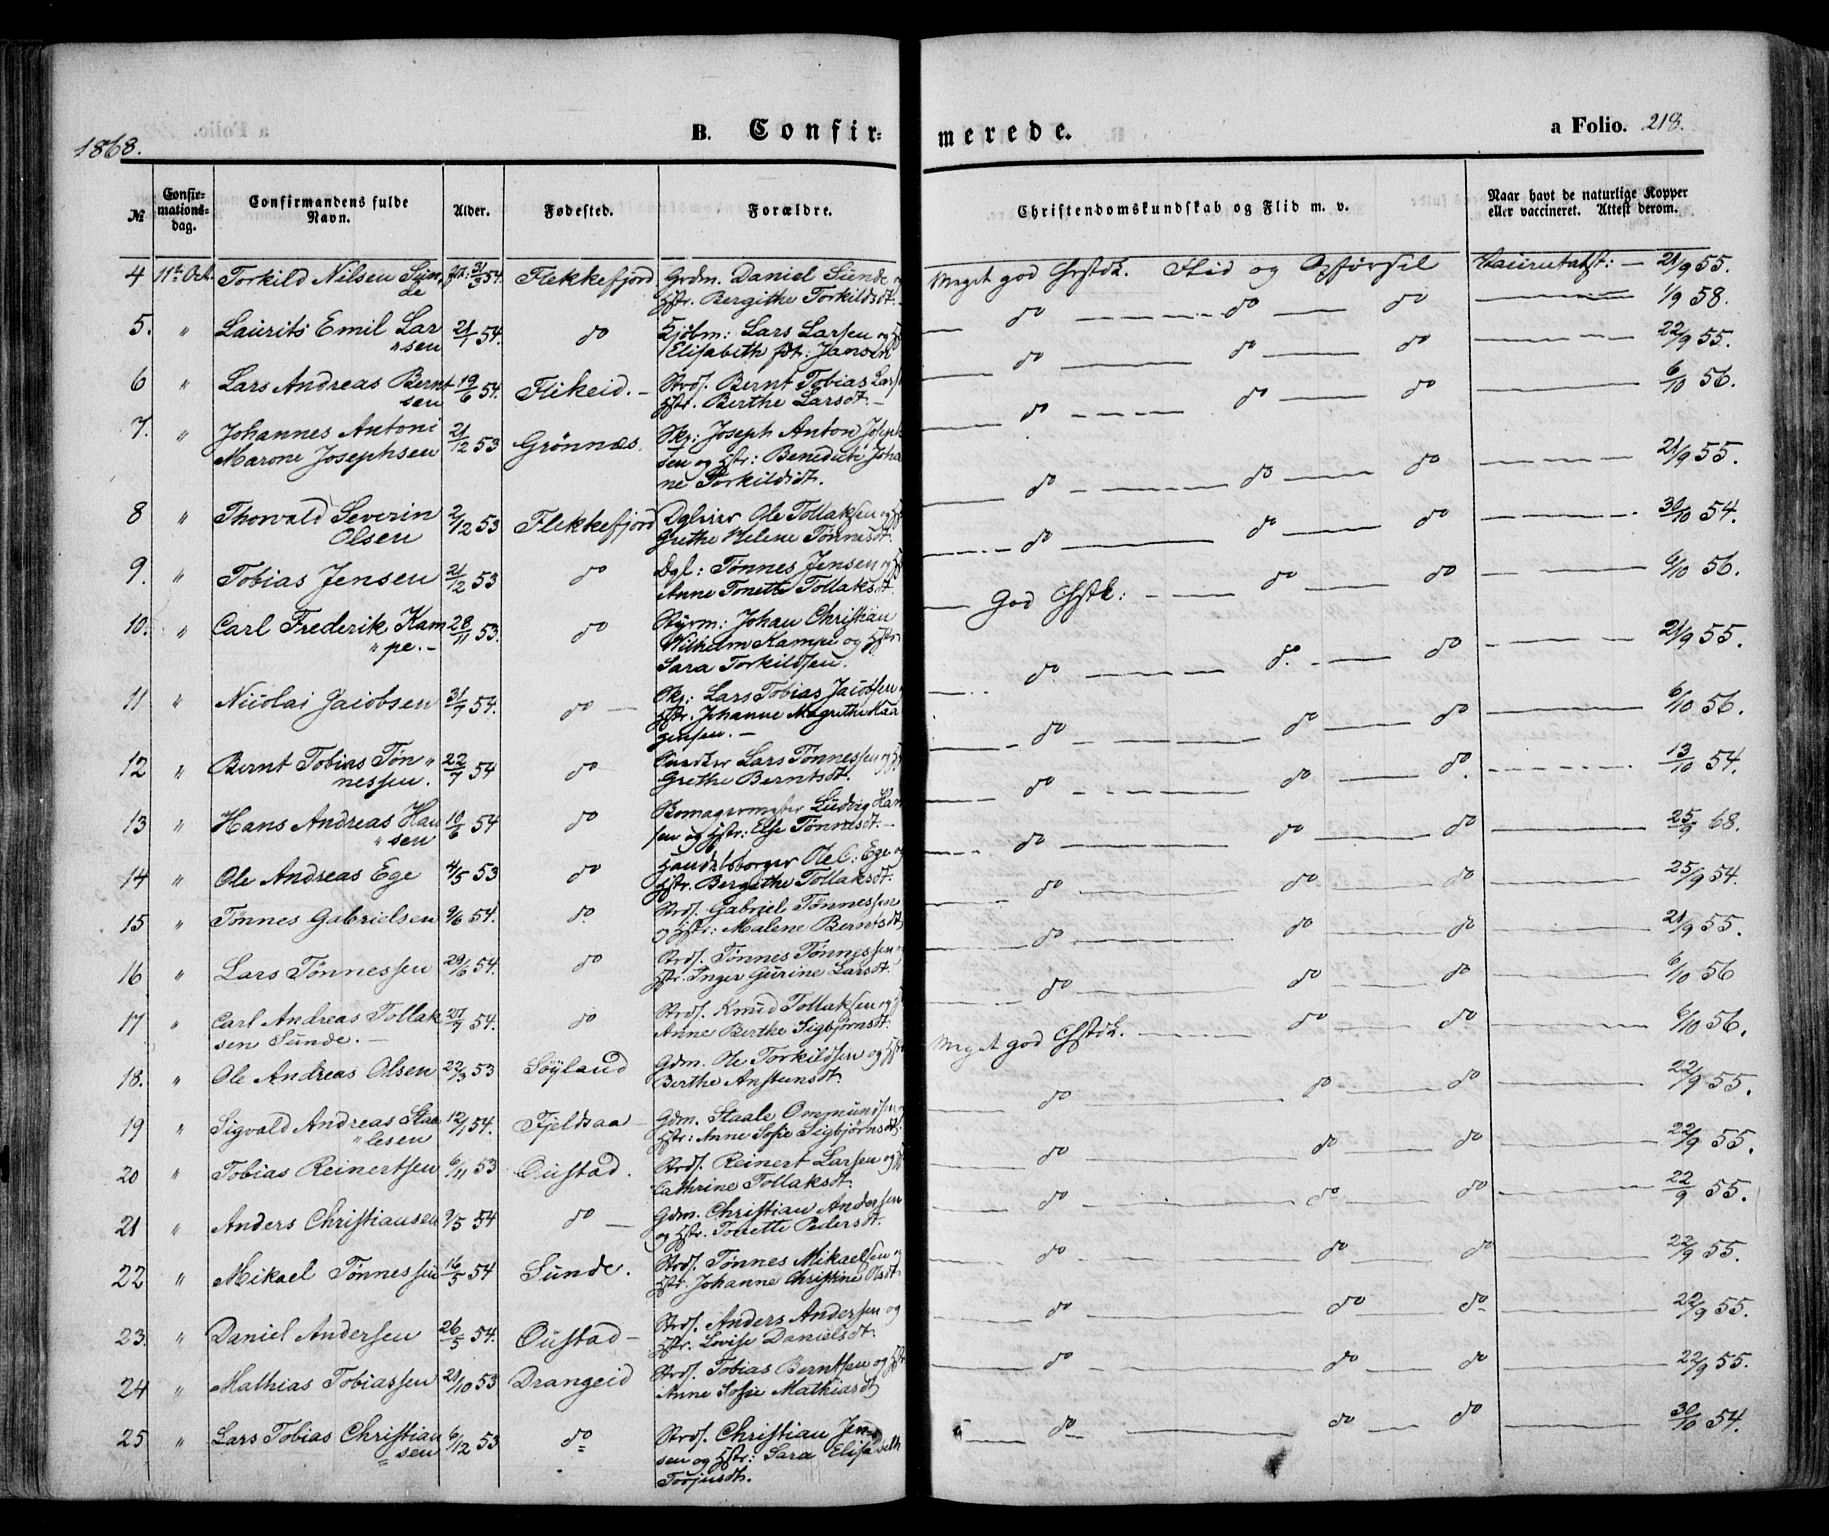 1868.
B. Confir-
merede.
a Folio. 218.
No
Confir-
mations-
dag.
Confirmandens fulde
Navn.
Alder.
Fødested.
Forældre.
Christendomskundskab og Flid m. v.
Naar havt de naturlige Kopper
eller vaccineret. Attest derom.
4 11te Oct. Torkild Nilsen Sun- 31/3 54. Flekkefjord Grdm. Daniel Sunde og Meget god Flid og Opførsel 21/9 55.
de Hstr. Bergithe Torkildsdt.
5. " Laurits Emil Lar 21/1 54. do Kjøbm: Lars Larsen og do do do 1/9 58.
"sen Elisabeth fdt: Jansen
6 " Lars Andreas Bernt 19/6 54. Flikeid. Strds. Bernt Tobias do do do 22/9 55.
sen Hstr. Berthe Larsdt.
7. " Johannes Antoni 21/12 53 Grønnæs. Joseph Anton Joseph do do do 6/10 56.
Marone Josephsen sen og Hstr: Benedicte Joha
ne Torkildsdt.
8 " Thorvald Severin 2/12 53 Flekkefjord Ole Tollaksen og do do do 21/9 55.
Olsen Grethe Helene Tønnesdt.
9. " Tobias Jensen 21/12 53 do Dgl: Tønnes Jensen og do do do 30/10 54.
Anne Tonette Tollaksdt.
10. " Carl Frederik Kam 28/11 53. do Styrm: Johan Christian God do do 6/10 56.
"pe. Wilhelm Kampe og Hstr
Sara Torkildsen.
11 " Nicolai Jacobsen 31/7 54. do Lars Tobias Jacobsen do do do 21/9 55.
Hstr. Johanne
12 " Bernt Tobias Tøn" 22/7 54 do Lars Tønnessen og do do do 6/10 56.
nessen. Grethe Berntsdt.
13 " Hans Andreas Han 10/6 54 do Ludvig Han do do do 13/10 54.
"sen sen og Hstr: Else Tønnesdt.
14 " Ole Andreas Ege 4/5 53 do Handelsborger Ole C. Ege og do do do 25/9 68.
Hstr. Bergithe Tollaksdt.
15 " Tønnes Gabrielsen 9/6 54. do. Strds. Gabriel Tønnessen do do do 25/9 54.
og Hstr: Malene Berntsdt
16 " Lars Tønnessen 29/6 54. do Strds. Tønnes Tønnessen do do do 21/9 55.
Hstr. Inger Gurine Larsdt.
17 " Carl Andreas Tollak 27/7 54. do Strds. Knud Tollaksen og do do do 6/10 56
sen Sunde. Anne Berthe Sigbjørnsdt.
18. " Ole Andreas Olsen 22/3 53 Søyland Gdm. Ole Torkildsen og Meget god do do 6/10 56.
Berthe Anstensdt.
19 " Sigvald Andreas Staa 12/1 54. Fjeldsaa Gdm. Staale Ommundsen do do do 22/9 55.
"lesen Hstr: Anne Sofie Sigbjørnsdt.
20 " Tobias Reinertsen 6/11 53 Oustad. Strds. Reinert Larsen og do do do 22/9 55.
Cathrine Tollaksdt.
21 " Anders Christiansen 9/5 54 do Gdm. Christian Andersen do do do 22/9 55.
og Hstr. Tonette Pedersdt.
22 " Mikael Tønnessen 16/5 54 Sunde. Strds. Tønnes Mikaelsen do do do 22/9 55.
Hstr. Johanne Christine Olsdt
23. " Daniel Andersen 26/5 54. Oustad Strds. Anders Andersen og do do do 22/9 55.
Hstr. Lovise Danielsdt.
24 " Mathias Tobiassen 21/10 53 Drangeid Strds. Tobias Berntsen og do do do 22/9 55.
Anne Sofie Mathiasdt
25 " Lars Tobias Christian 6/12 53 do Strds. Christian Jen do do do 30/10 54.
sen sen og Hstr: Sara Elisabeth